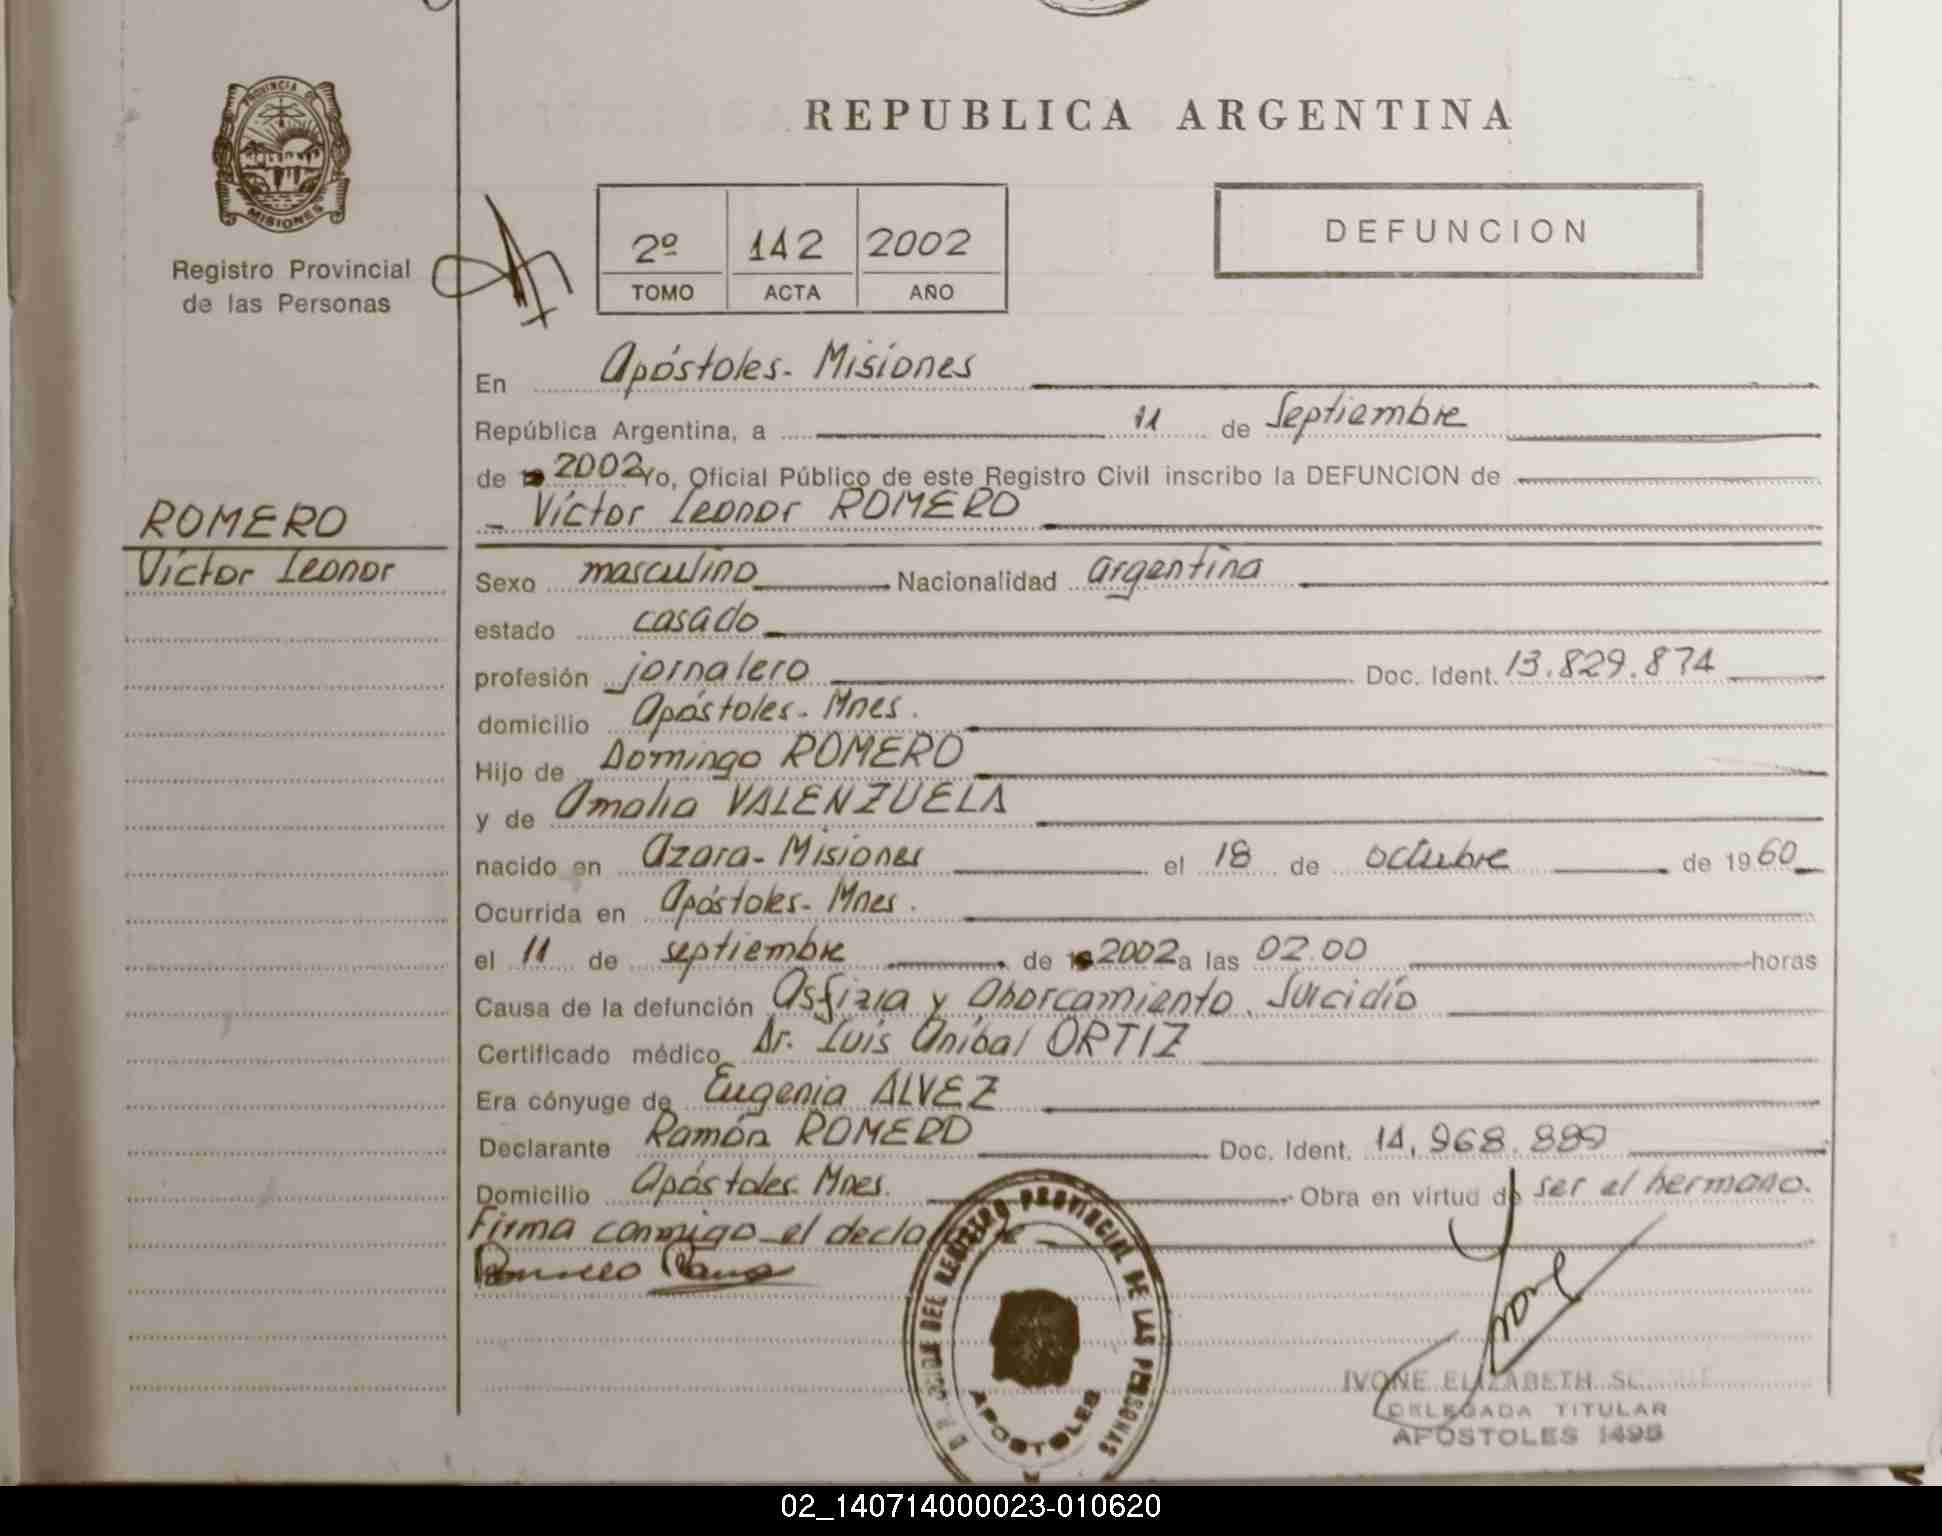 PROVINCIA DE
MISIONES
Registro Provincial
de las Personas
REPUBLICA ARGENTINA
2º 142 2002
TOMO ACTA AÑO
DEFUNCION
En Apóstoles- Misiones
República Argentina, a 11 de Septiembre
de 2002 Yo, Oficial Público de este Registro Civil inscribo la DEFUNCION de
Víctor Leonor ROMERO
ROMERO
Víctor Leonor
Sexo masculino Nacionalidad argentina
estado casado
profesión jornalero Doc. Ident. 13.829.874
domicilio Apóstoles- Mnes.
Hijo de Domingo ROMERO
y de Amalia VALENZUELA
nacido en Azara- Misiones el 18 de octubre de 1960
Ocurrida en Apóstoles- Mnes.
el 11 de septiembre de 2002 a las 02.00 horas
Causa de la defunción Asfixia y Ahorcamiento. Suicidio
Certificado médico Dr. Luis Aníbal ORTIZ
Era cónyuge de Eugenia ALVEZ
Declarante Ramón ROMERO Doc. Ident. 14.968.889
Domicilio Apóstoles- Mnes. Obra en virtud de ser el hermano.
Firma conmigo el
DEL REGISTRO PROVINCIAL DE LAS PERSONAS
APOSTOLES
IVONE ELIZABETH
DELEGADA TITULAR
APOSTOLES 1495
02_140714000023-010620